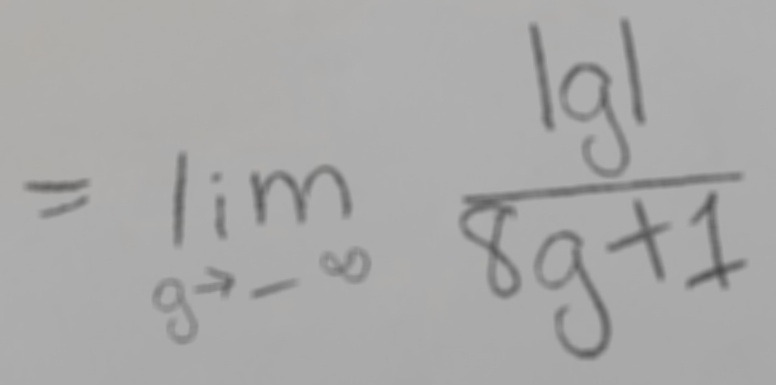 = lim_{g→-∞} \frac{|g|}{8g+1}